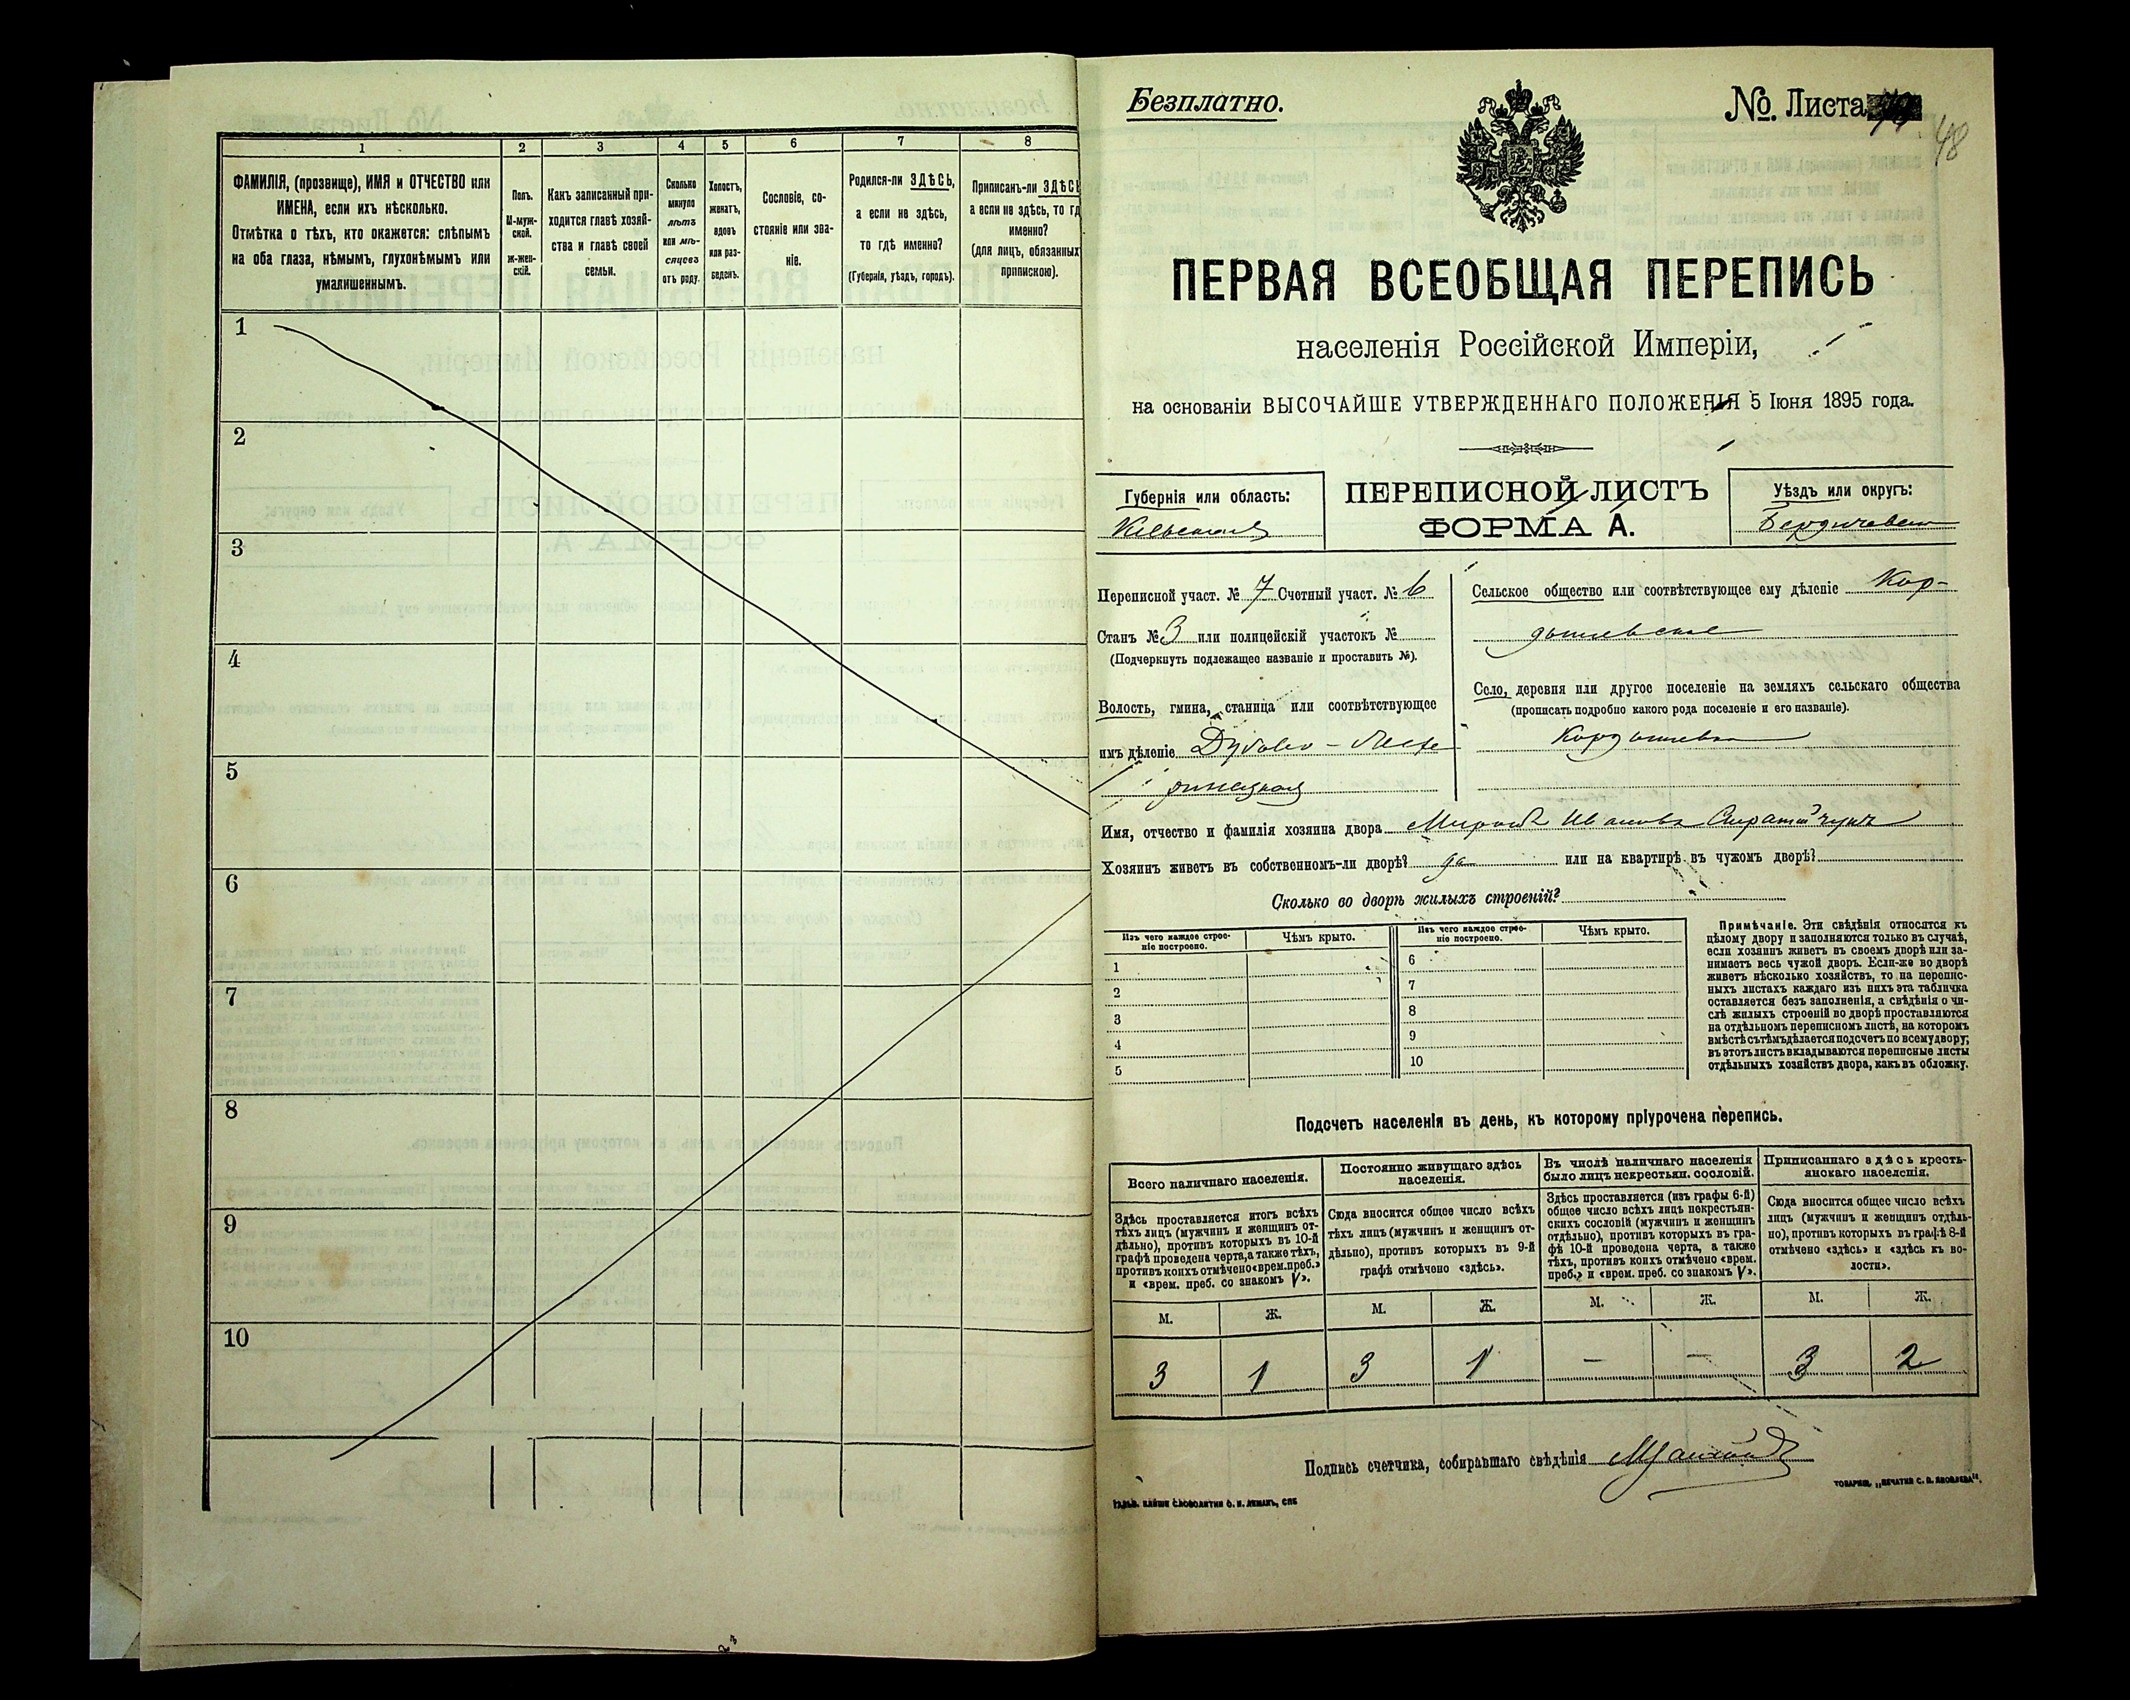 1
2
3
4
5
6
7
8
ФАМИЛІЯ, (прозвище), ИМЯ и ОТЧЕСТВО или
ИМЕНА, если ихъ нѣсколько.
Отмѣтка о тѣхъ, кто окажется: слѣпымъ
на оба глаза, нѣмымъ, глухонѣмымъ или
умалишеннымъ.
Полъ.
М-муж-
ской.
Ж-жен-
скій.
Какъ записанный при-
ходится главѣ хозяй-
ства и главѣ своей
семьи.
Сколько
минуло
лѣтъ
или мѣ-
сяцевъ
отъ роду.
Холостъ,
женатъ,
вдовъ
или раз-
веденъ.
Сословіе, со-
стояніе или зва-
ніе.
Родился-ли ЗДѢСЬ,
а если не здѣсь,
то гдѣ именно?
(Губернія, уѣздъ, городъ).
Приписанъ-ли ЗДѢСЬ
а если не здѣсь, то гд
именно?
(для лицъ, обязанныхъ
припискою).
1
2
3
4
5
6
7
8
9
10
Безплатно.
№ Листа
48
ПЕРВАЯ ВСЕОБЩАЯ ПЕРЕПИСЬ
населенія Россійской Имперіи,
на основаніи ВЫСОЧАЙШЕ УТВЕРЖДЕННАГО ПОЛОЖЕНІЯ 5 Іюня 1895 года.
Губернія или область:
Кіевская
ПЕРЕПИСНОЙ ЛИСТЪ
ФОРМА А.
Уѣздъ или округъ:
Бердичевск
Переписной участ. № 7 Счетный участ. № 6
Станъ № 3 или полицейскій участокъ №
(Подчеркнуть подлежащее названіе и проставить №).
Волость, гмина, станица или соотвѣтствующее
имъ дѣленіе Дубово-Мехе
ринецкая
Сельское общество или соотвѣтствующее ему дѣленіе Кор-
дышевское
Село, деревня или другое поселеніе на земляхъ сельскаго общества
(прописать подробно какого рода поселеніе и его названіе).
Кордышевка
Имя, отчество и фамилія хозяина двора Миронъ Ивановъ
Хозяинъ живетъ въ собственномъ-ли дворѣ? да или на квартирѣ въ чужомъ дворѣ?
Сколько во дворѣ жилыхъ строеній?
Изъ чего каждое строе-
ніе построено.
Чѣмъ крыто.
Изъ чего каждое строе-
ніе построено.
Чѣмъ крыто.
1
2
3
4
5
6
7
8
9
10
Примѣчаніе. Эти свѣдѣнія относятся къ
цѣлому двору и заполняются только въ случаѣ,
если хозяинъ живетъ въ своемъ дворѣ или за-
нимаетъ весь чужой дворъ. Если-же во дворѣ
живетъ нѣсколько хозяйствъ, то на перепис-
ныхъ листахъ каждаго изъ нихъ эта табличка
оставляется безъ заполненія, а свѣдѣнія о чи-
слѣ жилыхъ строеній во дворѣ проставляются
на отдѣльномъ переписномъ листѣ, на которомъ
вмѣстѣ съ тѣмъ дѣлается подсчетъ по всему двору;
въ этотъ листъ вкладываются переписные листы
отдѣльныхъ хозяйствъ двора, какъ въ обложку.
Подсчетъ населенія въ день, къ которому пріурочена перепись.
Всего наличнаго населенія.
Здѣсь проставляется итогъ всѣхъ
тѣхъ лицъ (мужчинъ и женщинъ от-
дѣльно), противъ которыхъ въ 10-й
графѣ проведена черта, а также тѣхъ,
противъ коихъ отмѣчено «врем. преб.»
и «врем. преб. со знакомъ V».
Постоянно живущаго здѣсь
населенія.
Сюда вносится общее число всѣхъ
тѣхъ лицъ (мужчинъ и женщинъ от-
дѣльно), противъ которыхъ въ 9-й
графѣ отмѣчено «здѣсь».
Въ числѣ наличнаго населенія
было лицъ некрестьян. сословій.
Здѣсь проставляется (изъ графы 6-й)
общее число всѣхъ лицъ некрестьян-
скихъ сословій (мужчинъ и женщинъ
отдѣльно), противъ которыхъ въ гра-
фѣ 10-й проведена черта, а также
тѣхъ, противъ коихъ отмѣчено «врем.
преб.» и «врем. преб. со знакомъ V».
Приписаннаго здѣсь кресть-
янскаго населенія.
Сюда вносится общее число всѣхъ
лицъ (мужчинъ и женщинъ отдѣль-
но), противъ которыхъ въ графѣ 8-й
отмѣчено «здѣсь» и «здѣсь къ во-
лости».
М. Ж. М. Ж. М. Ж. М. Ж.
3 1 3 1 — — 3 2
Подпись счетчика, собиравшаго свѣдѣнія
ТОВАРИЩ. „ПЕЧАТНЯ С. П. ЯКОВЛЕВА".